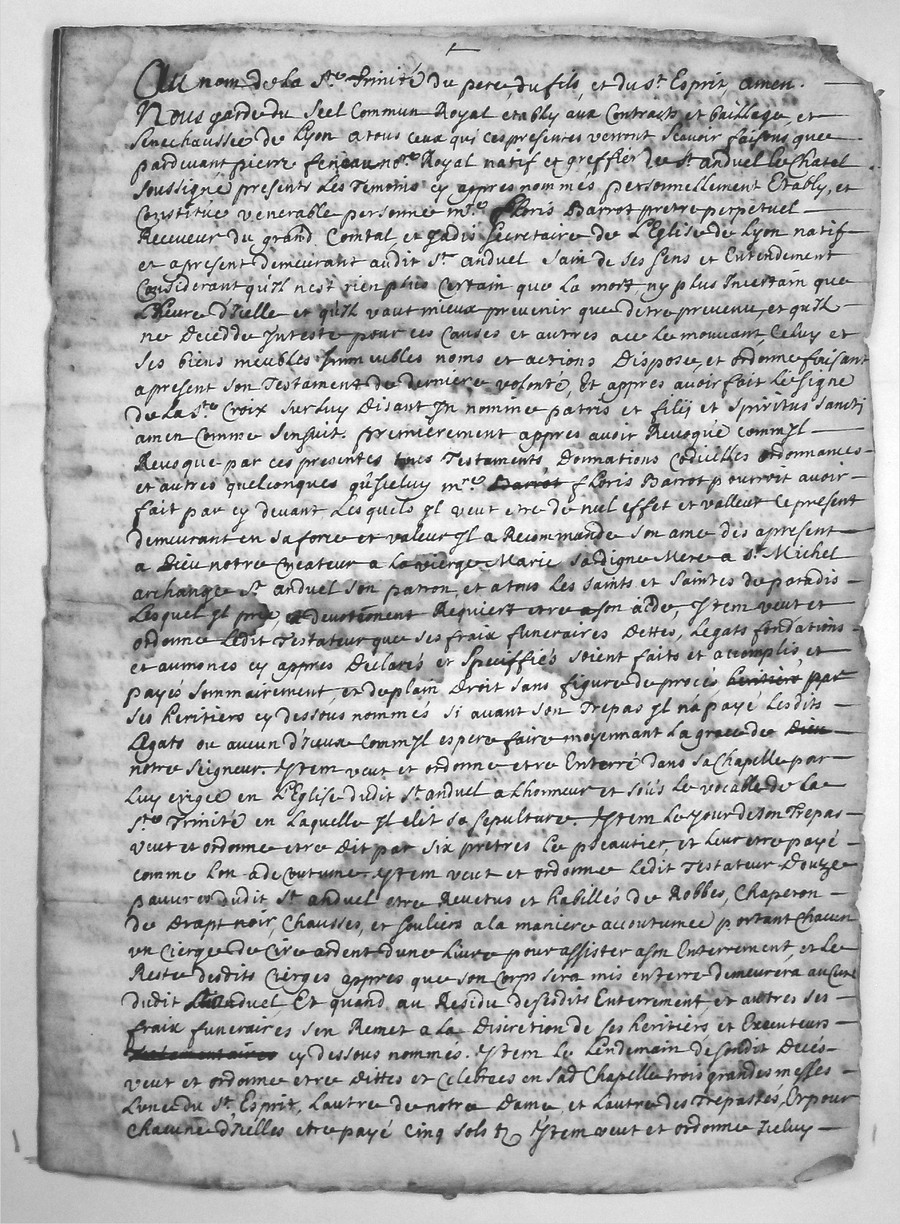 Au nom de la Ste Trinité du pere, du fils, et du st Esprit, amen.
Nous garde du Seel Commun Royal etably aux Contracts et bailliage et
Senechaussée de Lyon a tous ceux qui ces presentes verront scavoir faisons que
pardevant pierre nore Royal natif et greffier de St anduel le Chatel
soussigné presents Les Temoins cy appres nommés personnellement Etably, et
Constitué venerable personne mre floris Barrot pretre perpetuel
Receveur du grand Comtal, et jadis Secretaire de L'Eglise de Lyon natif
et apresent demeurant audit St anduel sain de ses sens et Entendement
Considerant qu'Il n'est rien plus Certain que La mort, ny plus Incertain que
L'heure d'Icelle et qu'Il vaut mieux prevenir que d'etre prevenu, et qu'Il
ne Decedde Inteste pour ces Causes et autres ace le mouvant, Celuy et
ses biens meubles Immeubles noms et actions Dispose, et ordonne faisant
apresent son Testament de derniere volonté, Et appres avoir fait Le signe
de La Ste Croix sur Luy Disant In nomine patris et filij et spiritus sancti
amen Comme s'ensuit. premierement appres avoir Revoqué comm'Il
Revoque par ces presentes tous Testaments, Donnations Codicilles ordonnances
et autres quelconques qu'Iceluy mre Barrot floris Barrot pourroit avoir
fait par cy devant Lesquels Il veut etre de nul effet et valleur Ce present
demeurant en sa force et valeur Il a Recommandé son ame des apresent
a Dieu notre Createur a La vierge Marie sa digne Mere a St Michel
archange St anduel son patron, et a tous Les saints et saintes de paradis
Lesquel Il prie, et devottement Requiert etre a son aide, Item veut et
ordonne Ledit Testateur que ses fraix funeraires Dettes, Legats fondations
et aumones cy appres Declarés et speciffiés soient faits et accomplis, et
payés sommairement, et de plain Droit sans figure de procés heritiers par
ses heritiers cy dessous nommés si avant son Trepas Il n'a payé Lesdits
Legats ou aucun d'Iceux comm'Il espere faire moyennant La grace de Dieu
notre Seigneur. Item veut et ordonne etre Enterré dans sa Chapelle par
Luy erigée en L'Eglise dudit St anduel a L'honneur et sous Le vocable de La
Ste Trinité en Laquelle Il elit sa sepulture. Item Le jour de son Trepas
veut et ordonne etre Dit par six pretres Le pseautier, et Leur etre payé
comme Lon a de Coutume. Item veut et ordonne Ledit Testateur Douze
pauvres dudit St anduel etre Revetus et habillés de Robbes, Chaperon
de Drapt noir, Chausses, et souliers a la maniere accoutumée portant Chacun
un Cierge de Cire ardent d'une Livre pour assister a son Enterrement, et Le
Reste desdits Cierges appres que son Corps sera mis en terre demeurera au Curé
dudit St anduel, Et quand au Residu desdits Enterrement, et autres ses
fraix funeraires s'en Remet a La Discretion de ses heritiers et Executeurs
testamentaires cy dessous nommés. Item Le Lendemain de sondit Decés
veut et ordonne etre Dittes et Celebrées en sad Chapelle trois grandes messes
L'une du St Esprit, L'autre de notre Dame et L'autre des Trepassés, Et pour
Chacune d'Icelles etre payé Cinq sols Item veut et ordonne Iceluy